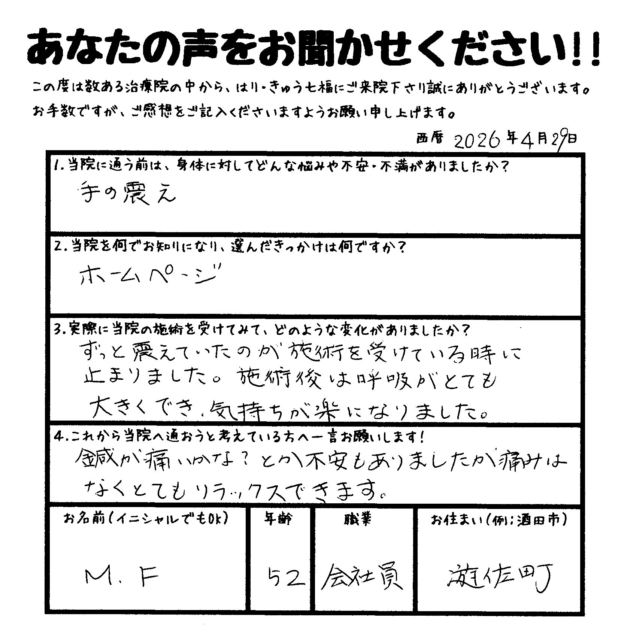 あなたの声をお聞かせください!!
この度は数ある治療院の中から、はり・きゅう七福にご来院下さり誠にありがとうございます。
お手数ですが、ご感想をご記入くださいますようお願い申し上げます。
西暦 2026年4月29日
1.当院に通う前は、身体に対してどんな悩みや不安・不満がありましたか?
手の震え
2.当院を何でお知りになり、選んだきっかけは何ですか?
ホームページ
3.実際に当院の施術を受けてみて、どのような変化がありましたか?
ずっと震えていたのが施術を受けている時に
止まりました。施術後は呼吸がとても
大きくでき、気持ちが楽になりました。
4.これから当院へ通おうと考えている方へ一言お願いします!
鍼が痛いかな?とか不安もありましたが痛みは
なくとてもリラックスできます。
お名前(イニシャルでもOK) 年齢 職業 お住まい(例;酒田市)
M.F 52 会社員 遊佐町